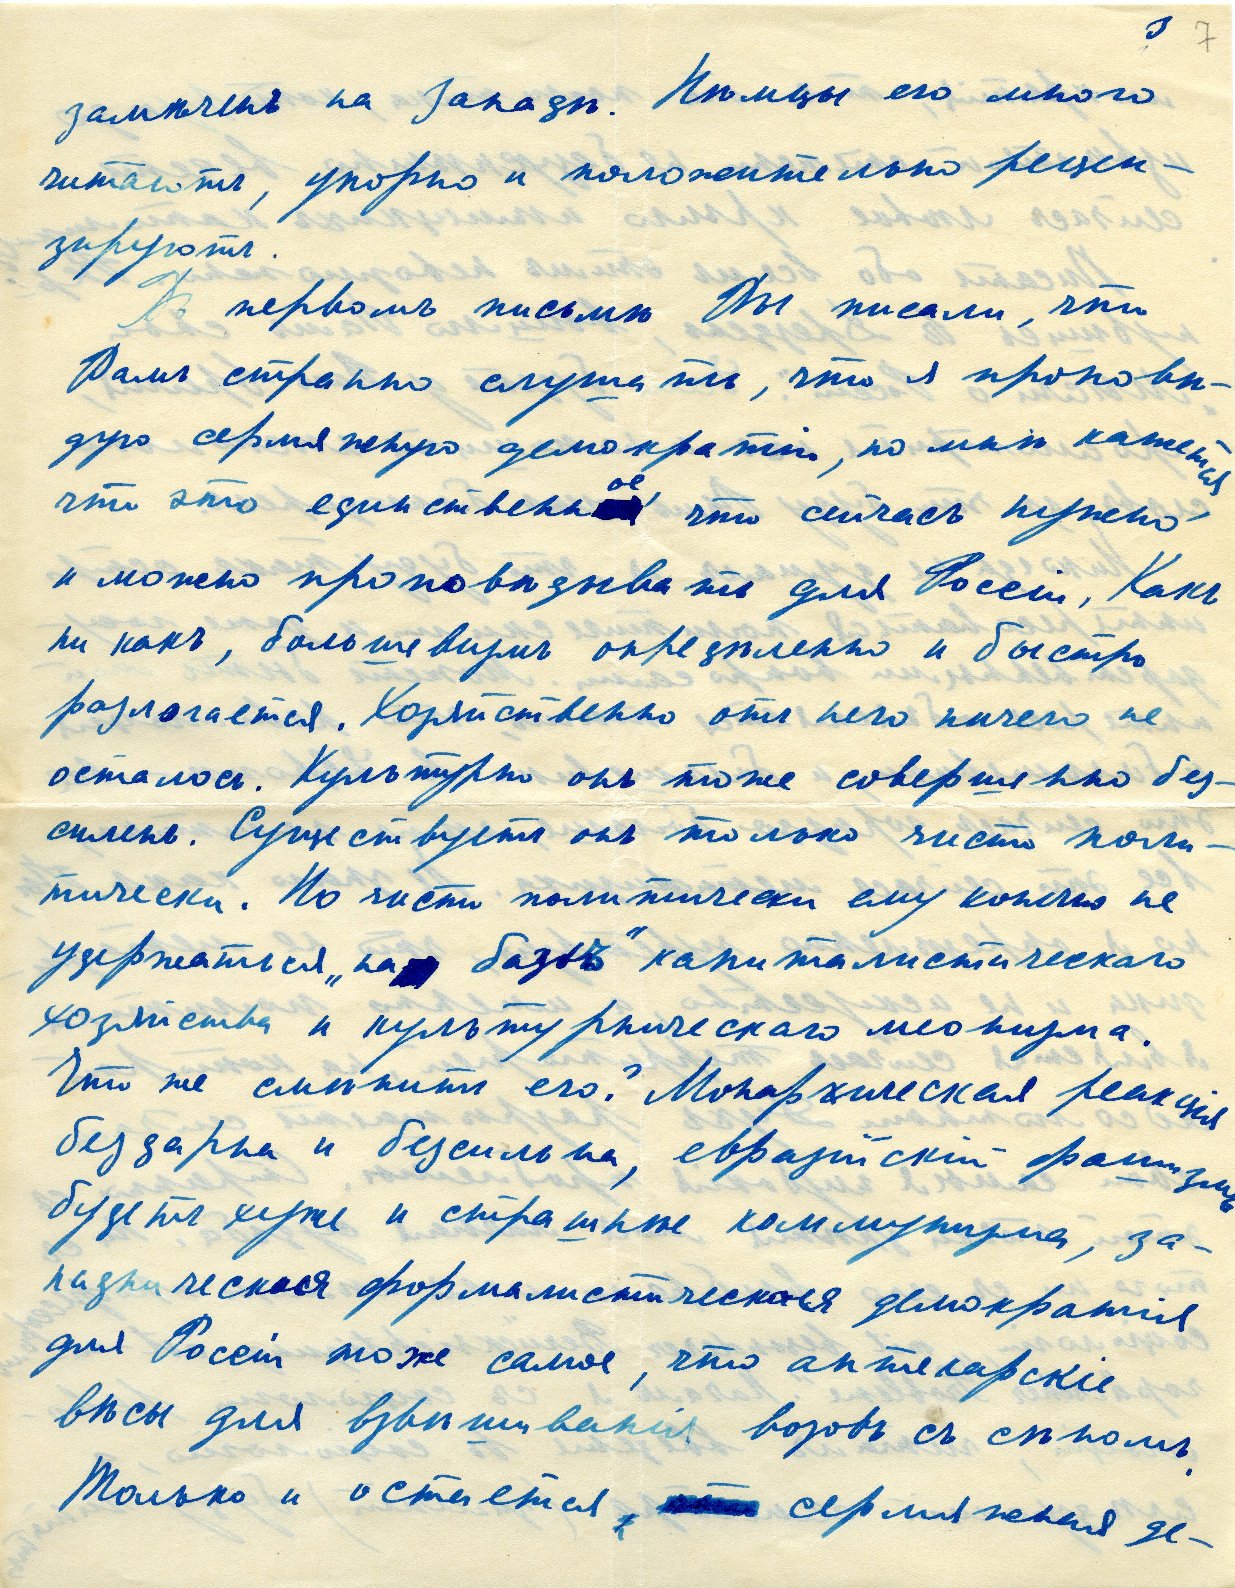 3 7
замѣченъ на Западѣ. Нѣмцы его много
читаютъ, упорно и положительно рецен-
зируютъ.
Въ первомъ письмѣ Вы писали, что
Вамъ странно слушать, что я проповѣ-
дую сермяжную демократію, но мнѣ кажется
что это единственное, что сейчасъ нужно
и можно проповѣдывать для Россіи. Какъ
ни какъ, большевизмъ опредѣленно и быстро
разлогается. Хозяйственно отъ него ничего не
осталось. Культурно онъ тоже совершенно без-
силенъ. Существуетъ онъ только чисто поли-
тически. Но чисто политически ему конечно не
удержаться „на базѣ" капиталистическаго
хозяйства и культурническаго меонизма.
Что же смѣнитъ его? Монархическая реакція
бездарна и безсильна, евразійскій фашизмъ
будетъ хуже и страшнѣе коммунизма, за-
падническая формалистическая демократія
для Россіи тоже самое, что аптекарскіе
вѣсы для взвѣшиванія возовъ съ сѣномъ.
Только и остается, сермяжная де-